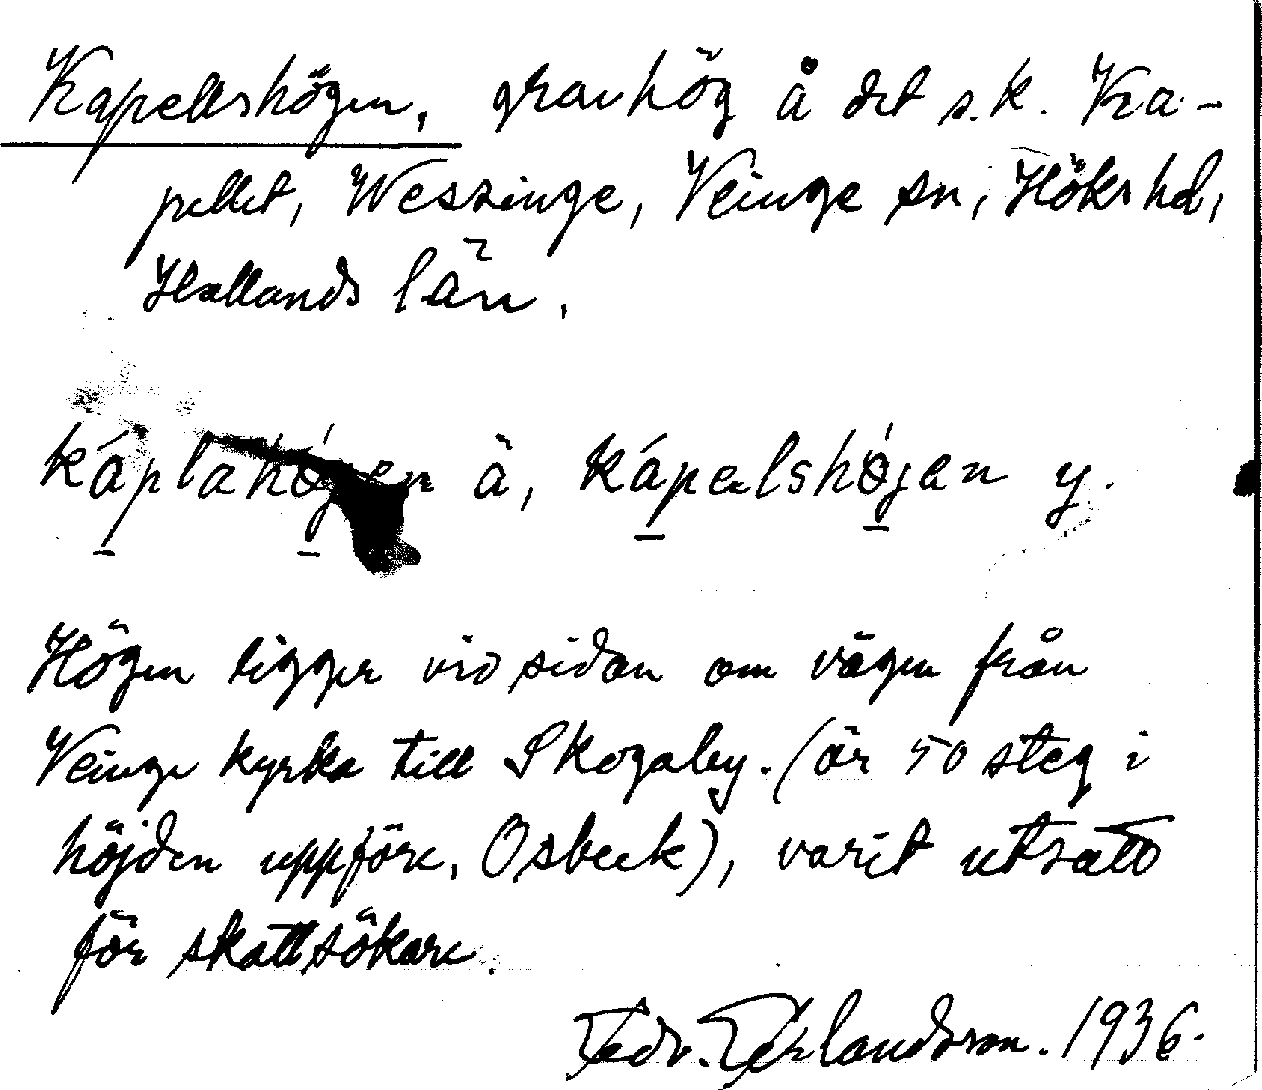 Kapellshögen, gravhög å det s.k. Ka-
pellet, Wessinge, Veinge sn, Höks hd,
Hallands län.
káplahögen ä, kápelshøgen y.
Högen ligger vid sidan om vägen från
Veinge kyrka till Skogaby. (är 50 steg i
höjden uppföre, Osbeck), varit utsatt
för skattsökare.
Erlandsson. 1936.